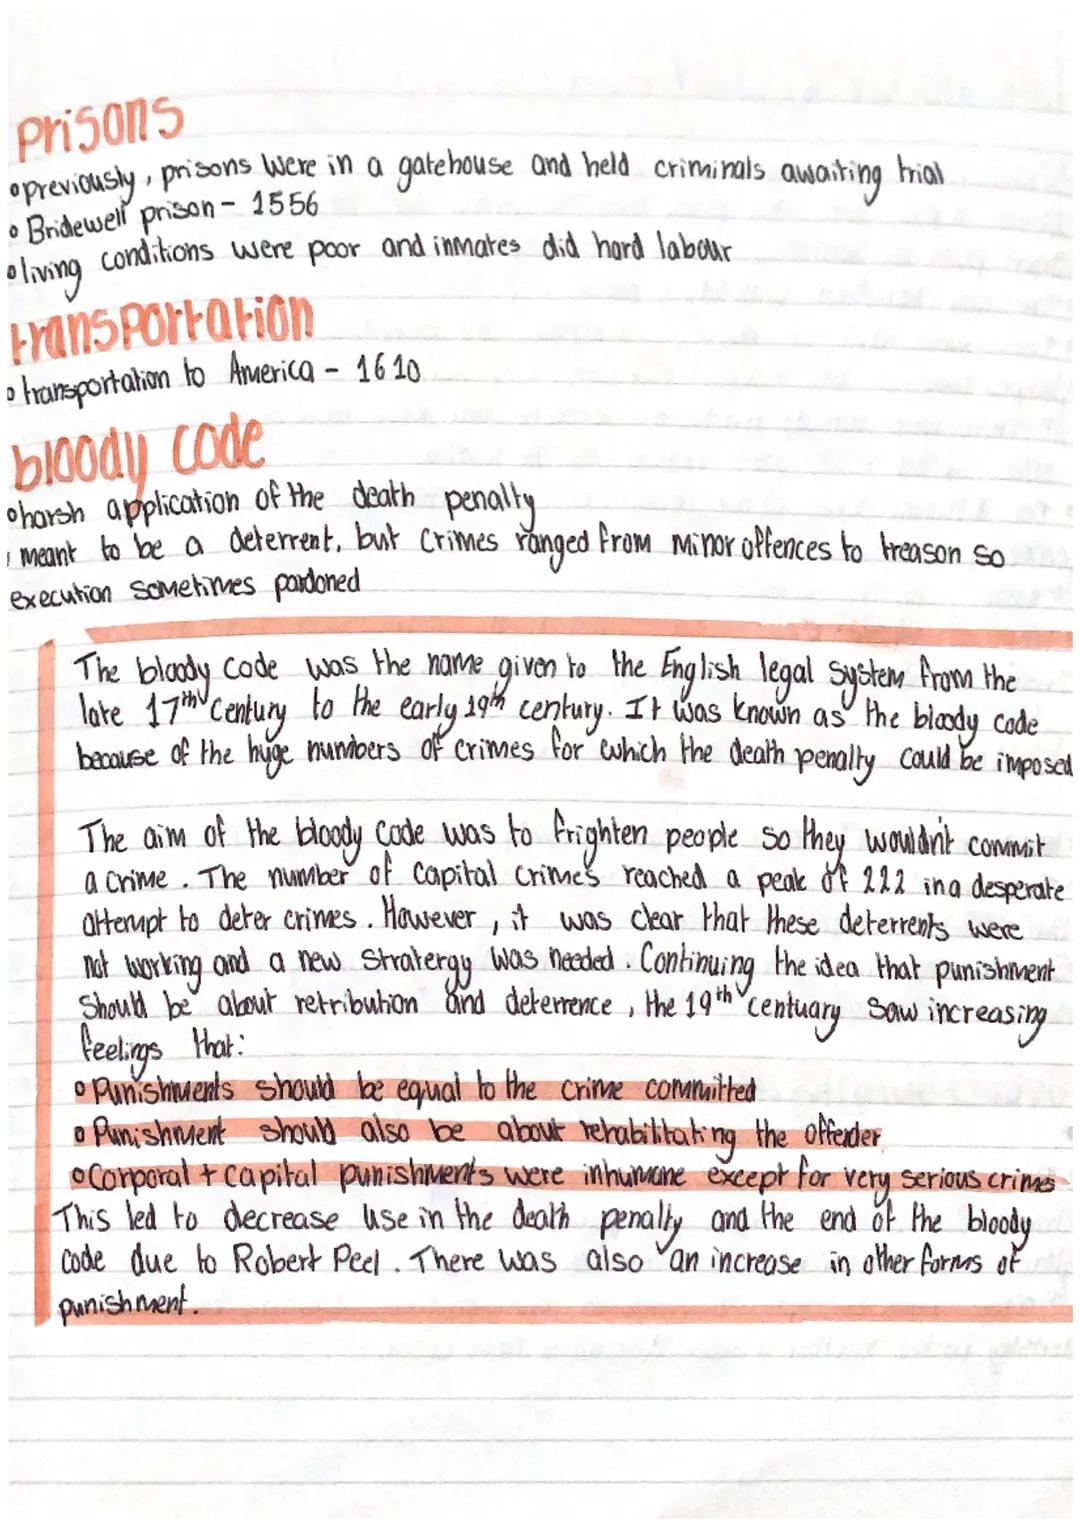 Prisons
previously, prisons were in a gatehouse and held criminals awaiting trial
Bridewell prison - 1556
living conditions were poor and inmates did hard labour
transportation
transportation to America - 1610
bloody code
harsh application of the death penalty
meant to be a deterrent, but crimes ranged from minor offences to treason so
execution sometimes pardoned
The bloody code was the name given to the English legal system from the
late 17th century to the early 19th century. It was known as the bloody code
because of the huge numbers of crimes for which the death penalty could be imposed
The aim of the bloody code was to frighten people so they wouldn't commit
a crime. The number of capital crimes reached a peak of 222 in a desperate
attempt to deter crimes. However, it was clear that these deterrents were
not working and a new stratergy was needed. Continuing the idea that punishment
should be about retribution and deterrence, the 19th centuary saw increasing
feelings that:
Punishments should be equal to the crime committed
Punishment should also be about rehabilitating the offender
Corporal + capital punishments were inhumane except for very serious crimes
This led to decrease use in the death penalty and the end of the bloody
code due to Robert Peel. There was also an increase in other forms of
punishment.